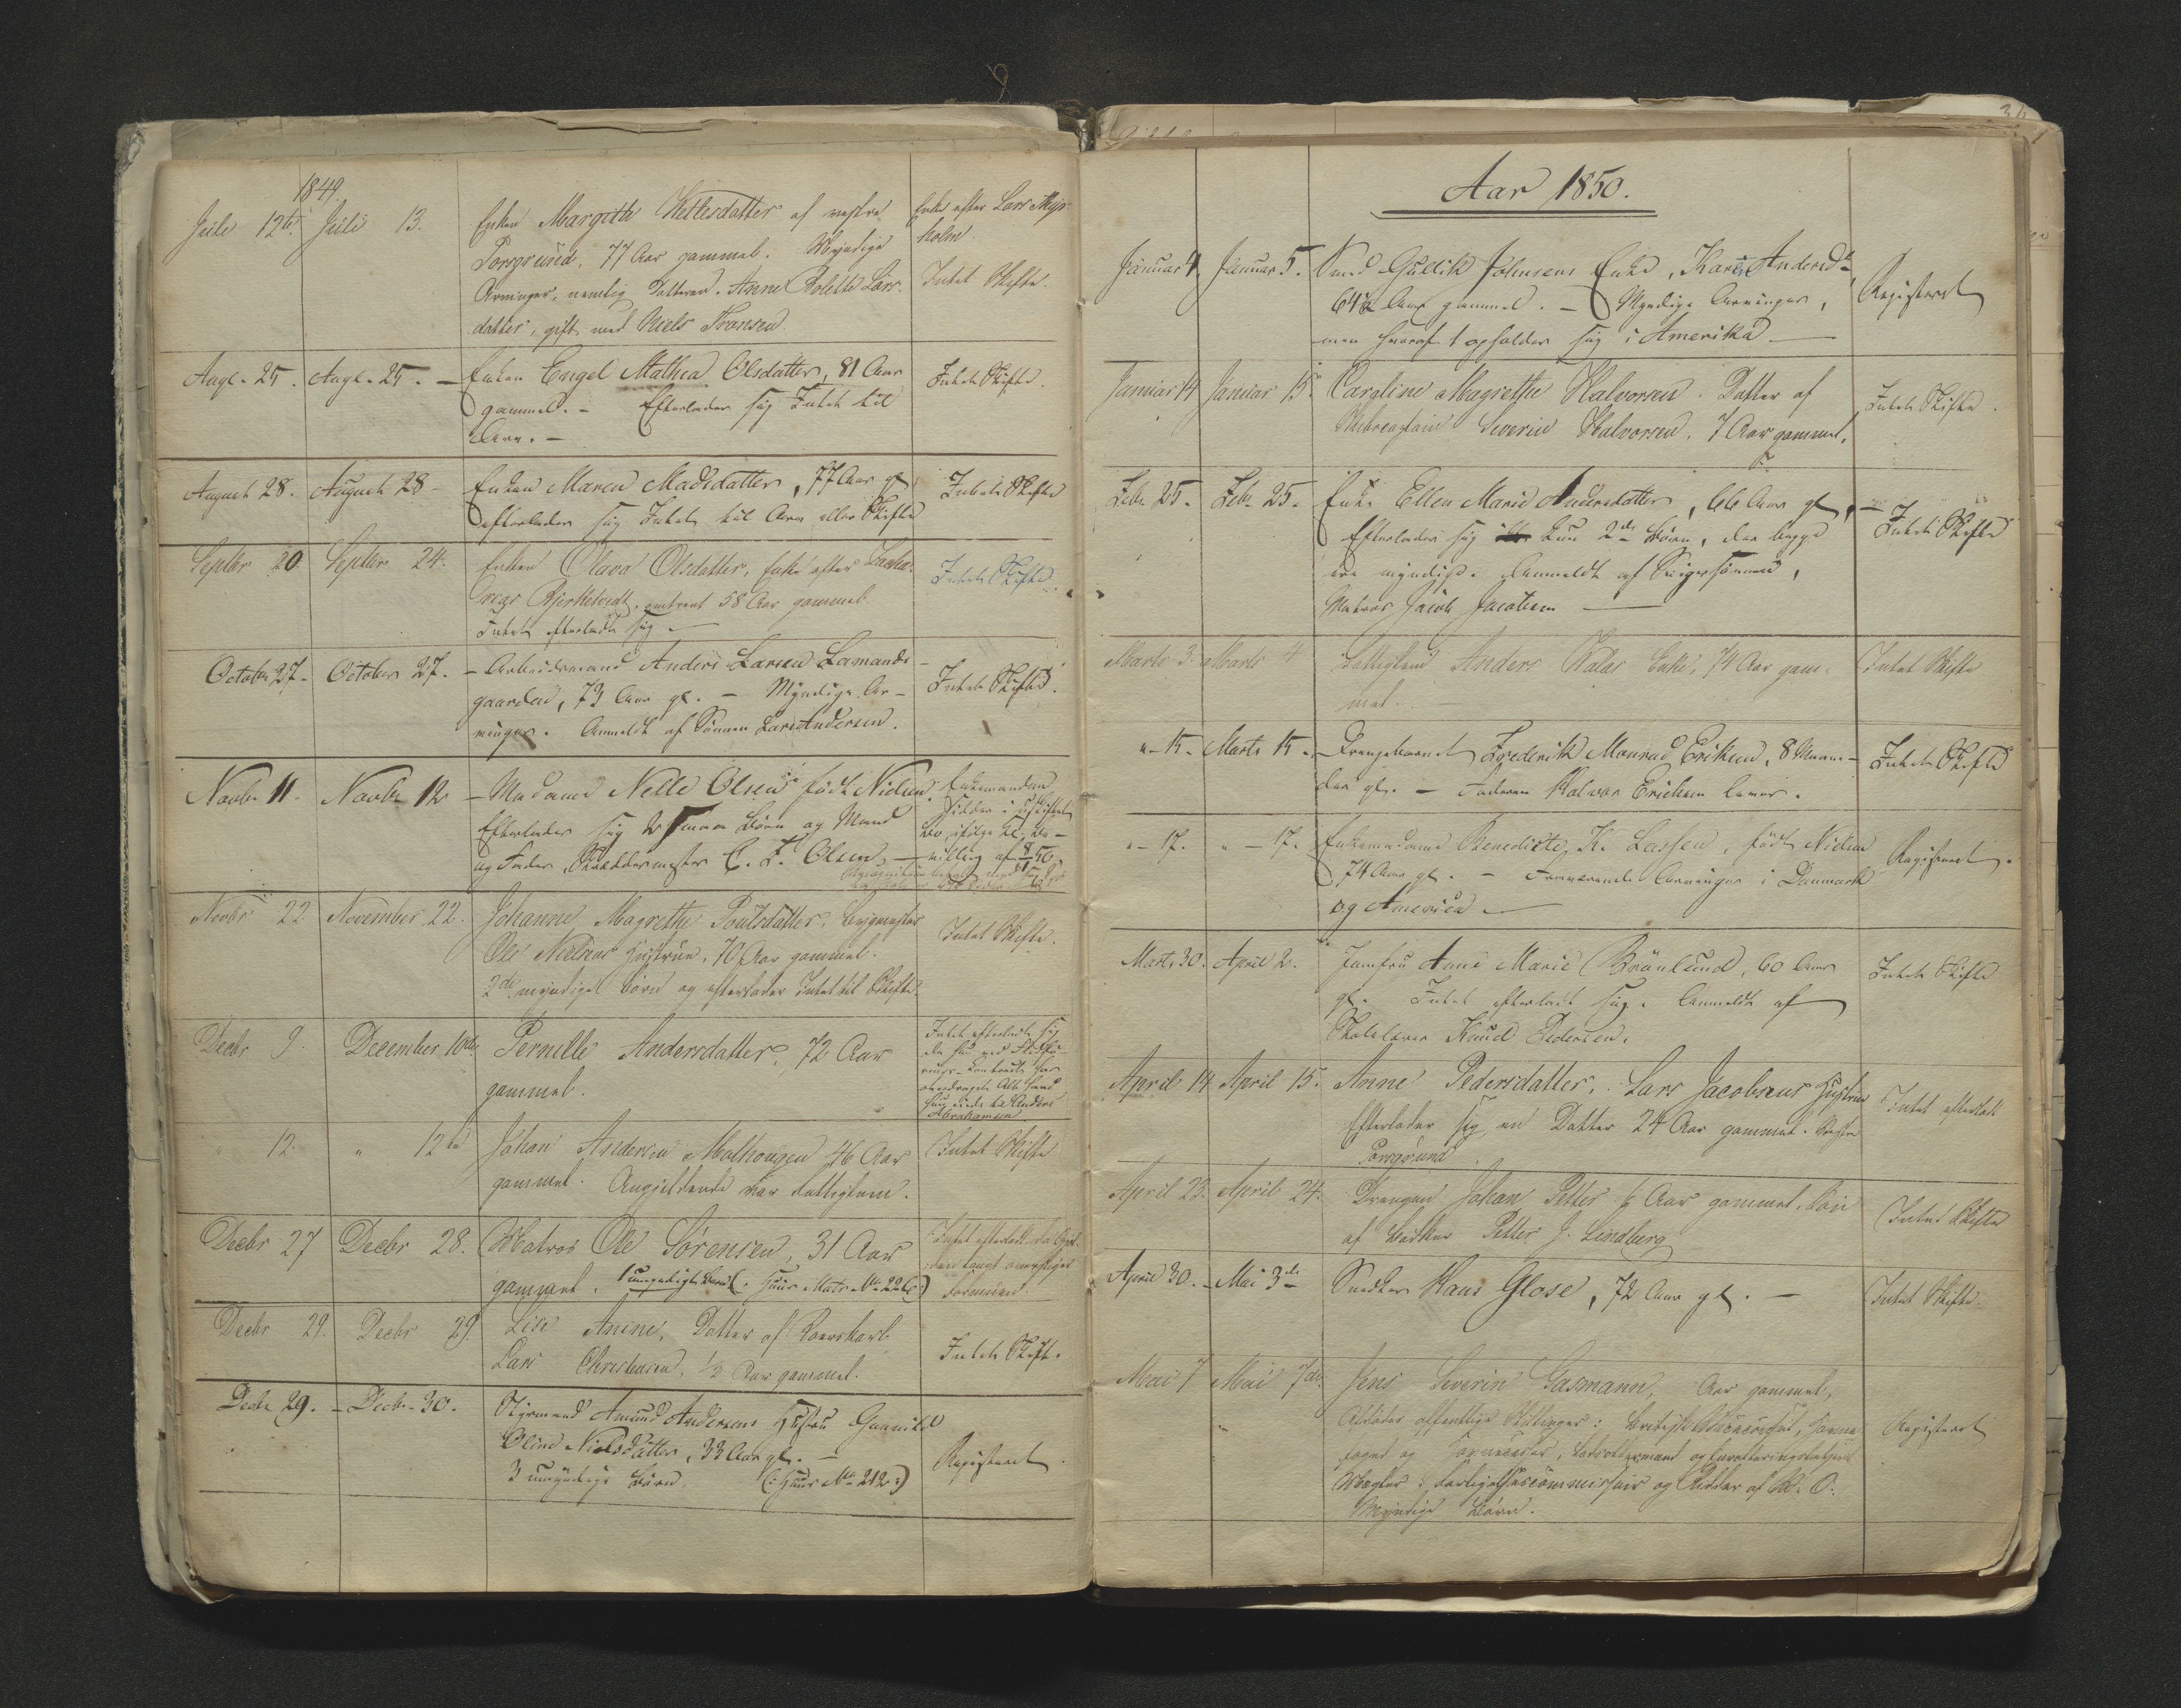 1849.
Juli 12te. Juli 13. Enken Margith Kittelsdatter af vestre
Porsgrund. 77 Aar gammel. Myndige
Arvinger, nemlig Datteren Anne Lars-
datter, gift med Niels Fransen.
Enke efter Lars Myr-
holm.
Intet Skifte.
Augt. 25. Augt. 25. – Enken Engel Mathea Olsdatter, 81 Aar
gammel. – Efterlader sig Intet til
Arv. –
Intet Skifte.
August 28. August 28 – Enken Maren Madsdatter, 77 Aar gl.
efterlader sig Intet til Arv eller Skifte
Intet Skifte
Septbr 20. Septbr. 24. Enken Olava Olsdatter, Enke efter
Bjerketvedt, omtrent 58 Aar gammel.
Intet efterladt sig –
Intet Skifte
October 27. October 27. – Arbeidsmand Anders Larsen Lamands-
gaarden, 73 Aar gl. – Myndige Ar-
vinger. Anmeldt af Sønnen Lars Andersen.
Intet Skifte.
Novbr. 11. Novbr 12 – Madame Nelle Olsen født Nielsen.
Efterlader sig 2 Børn og Mand
og Fader, C. F. Olsen, –
Enkemanden
sidder i uskiftet
Bo, ifølge Be-
villing af 8/1 50
Novbr 22 November 22. Johanne Magrethe Poulsdatter,
Ole Nielsens Hustrue, 70 Aar gammel.
2de myndige Børn og efterlader Intet til Skifte.
Intet Skifte.
Decbr 9. December 10de. Pernille Andersdatter, 72 Aar
gammel.
Intet efterladt sig
da hun ved
har
overdraget Alt hvad
hun eiede til Anders
Abrahamsen
" 12. " 12te Johan Andersen Molhougen 46 Aar
gammel. Angjeldende var Fattiglem.
Intet Skifte
Decbr 27 Decbr 28. Matros Ole Sørensen, 31 Aar
gammel. 1 umyndigt Barn (: Huus Matr. No. 226:)
Intet efterladt da
langt overstiger
Formuen.
Decbr 29. Decbr 29. Lise Anine, Datter af
Lars Christensen, 1/2 Aar gammel.
Intet Skifte.
Decbr 29. – Decbr. 30. Styrmand Amund Andersens Hustru Gunnild
Oline Nielsdatter, 33 Aar gl. –
3 umyndige Børn. (: Huus No 212:)
Registeret.
Aar 1850.
Januar 4 Januar 5. Smed Gullik Johnsens Enke, Kari Andersd.
64 1/2 Aar gammel. – Myndige Arvinger,
men hvoraf 1 opholder sig i Amerika –
Registeret
Januar 14 Januar 15. Caroline Magrethe Halvorsen. Datter af
Severin Halvorsen, 7 Aar gammel.
Intet Skifte.
Febr. 25. Febr. 25. Enke Ellen Marie Andersdatter, 66 Aar gl.,
Efterlader sig kun 2de Børn, der begge
ere myndige. Anmeldt af Svigersønnen,
Matros Jacob Jacobsen –
Intet Skifte
Marts 3. Marts 4 Fattiglem Anders Enke, 74 Aar gam-
mel. –
Intet Skifte
" – 15. Marts 15. – Drengebarnet Frederik Monrad Eriksen, 8 Maane-
der gl. – Faderen Halvor Eriksen lever.
Intet Skifte
" – 17. " – 17. Enkemadame Benedicte K. Lassen, født Nielsen
74 Aar gl. – Fraværende Arvinger i Danmark
og America –
Registeret.
Marts 30. April 2. Jomfru Anne Marie Brönlund, 60 Aar
gl. Intet efterladt sig. Anmeldt af
Skolelærer Knud Pedersen.
Intet Skifte
April 14 April 15. Anne Pedersdatter, Lars Jacobsens Hustrue
Efterlader sig en Datter 24 Aar gammel. Vestre
Porsgrund.
Intet efterladt
April 23. April 24. Drengen Johan Petter Aar gammel. Søn
af Petter J. Lindberg
Intet Skifte
April 30. – Mai 3de Snedker Hans Glose, 72 Aar gl. –
Intet Skifte.
Mai 7 Mai 7de. Jens Severin Gasmann, Aar gammel,
offentlige Stillinger:
foged og
og Ridder af
Myndige Børn.
Registeret